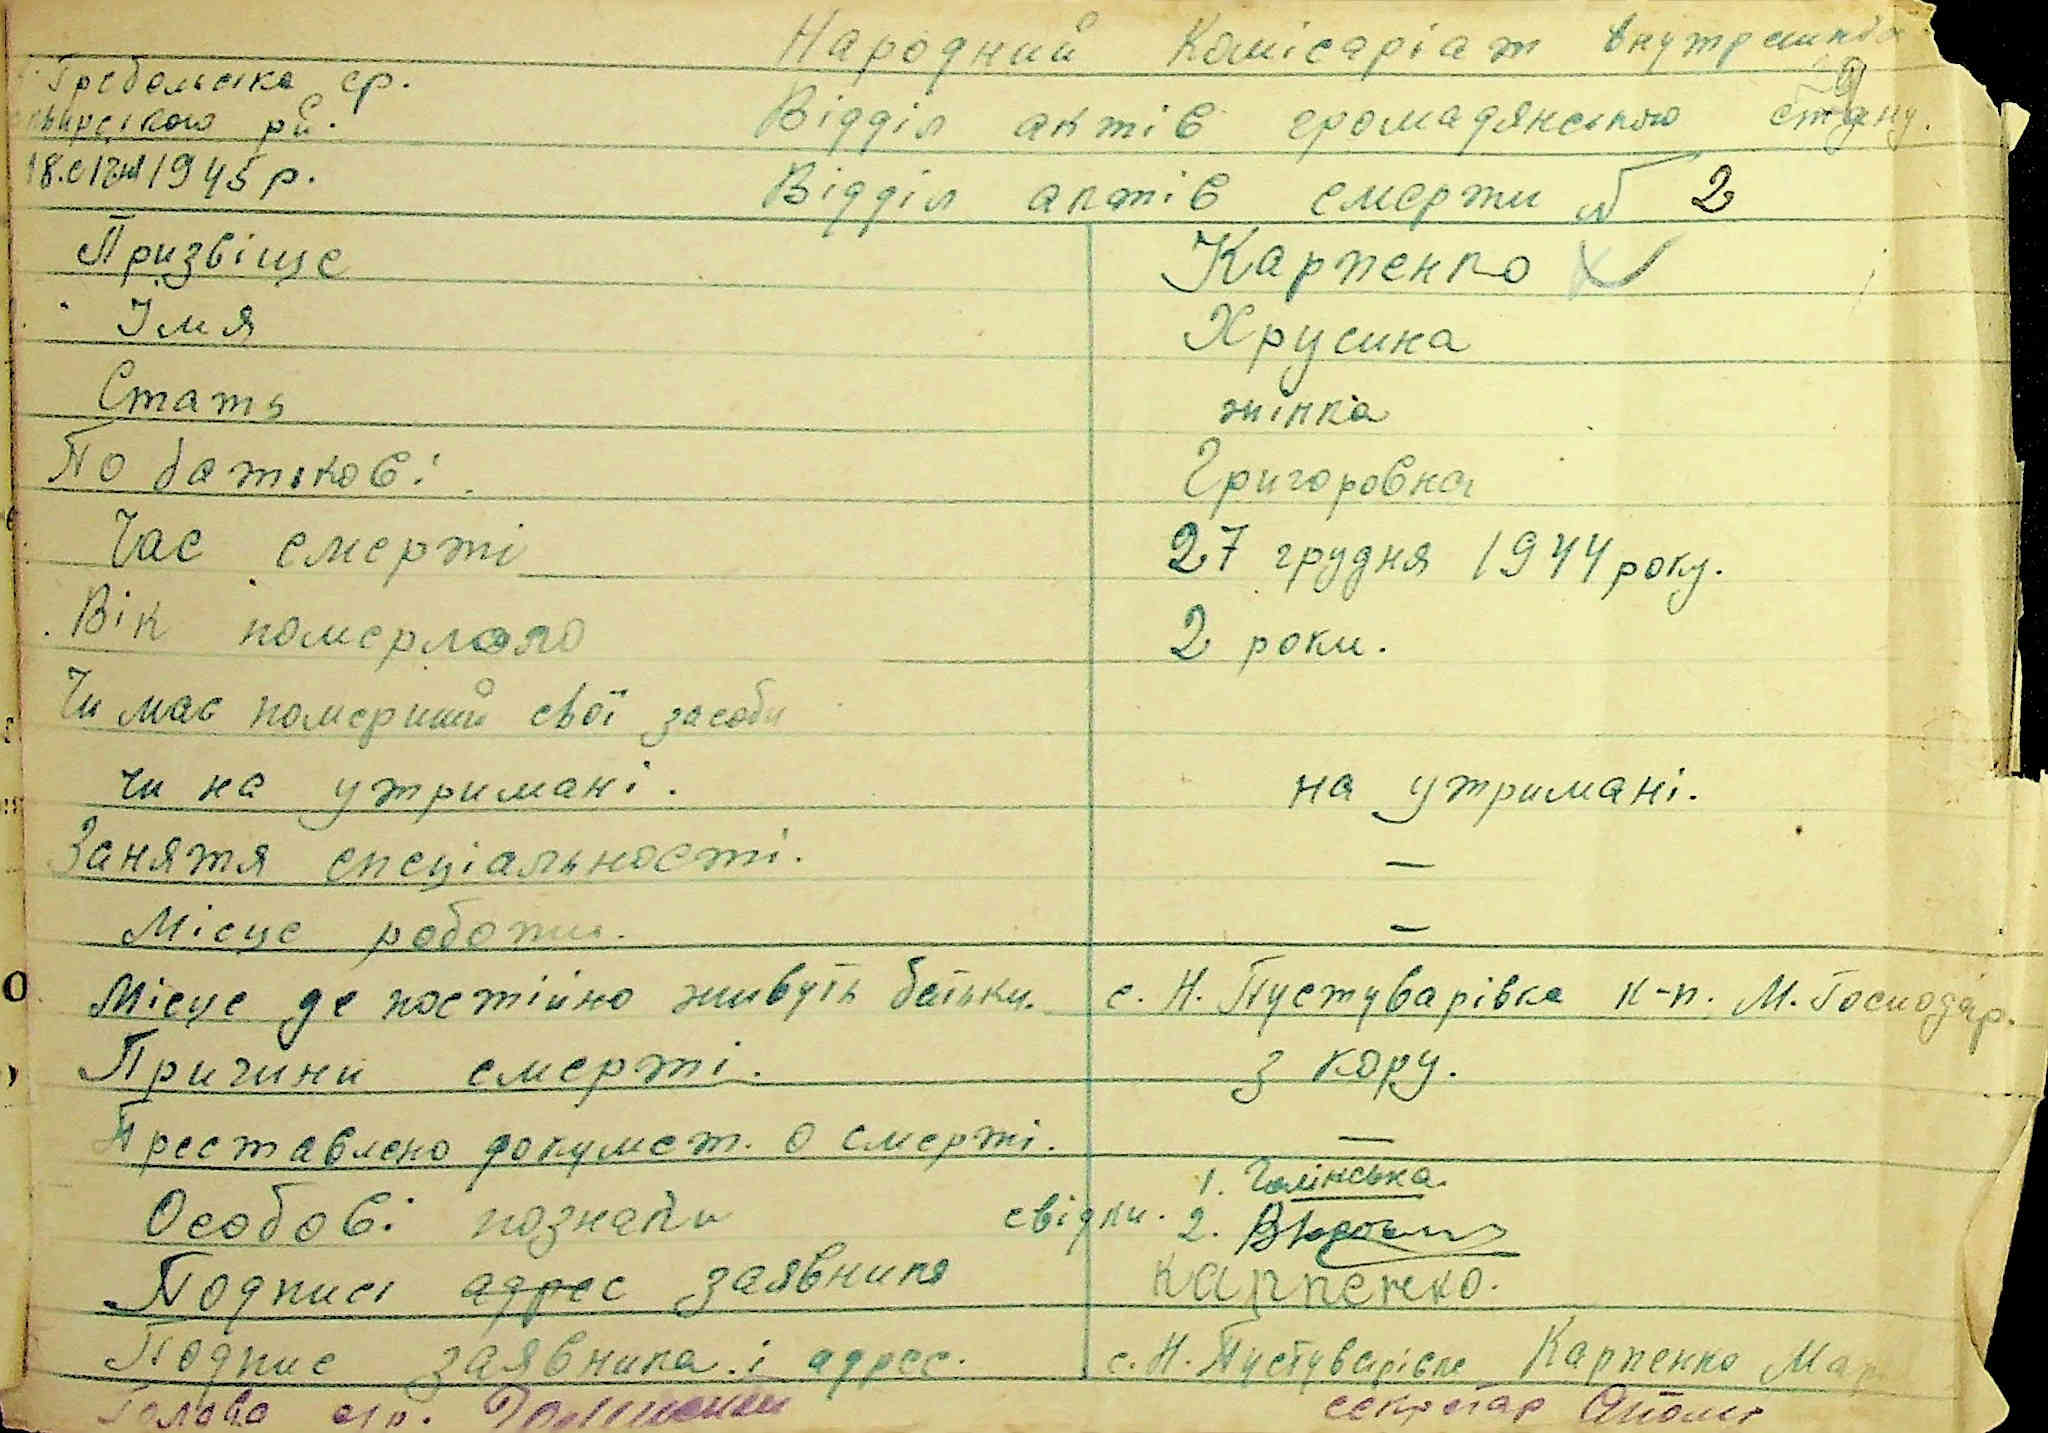 Народний Комісаріат внутрішніх
Гребельська ср.
Відділ актів громадянського стану.
рй.
18.січня 1945 р.
Відділ актів смерти № 2
Призвіще Карпенко
Імя Хрусина
Стать жінка
По батькові Григоровна
Час смерті 27 грудня 1944 року.
Вік померлого 2 роки.
Чи має померший свої засоби
чи на утримані. на утримані.
Заняття спеціальності. —
Місце роботи. —
Місце де постійно живуть батьки. с. Н. Пустуварівка к-п. М. Господар.
Причини смерті. з кору.
Преставлено докумет. о смерті. —
Особові познаки свідки. 1. Галінська.
2.
Подписі адрес заявника Карпенко.
Подпис заявника і адрес. с. Н. Пустуварівка Карпенко Мар
Голова с/р. секретар